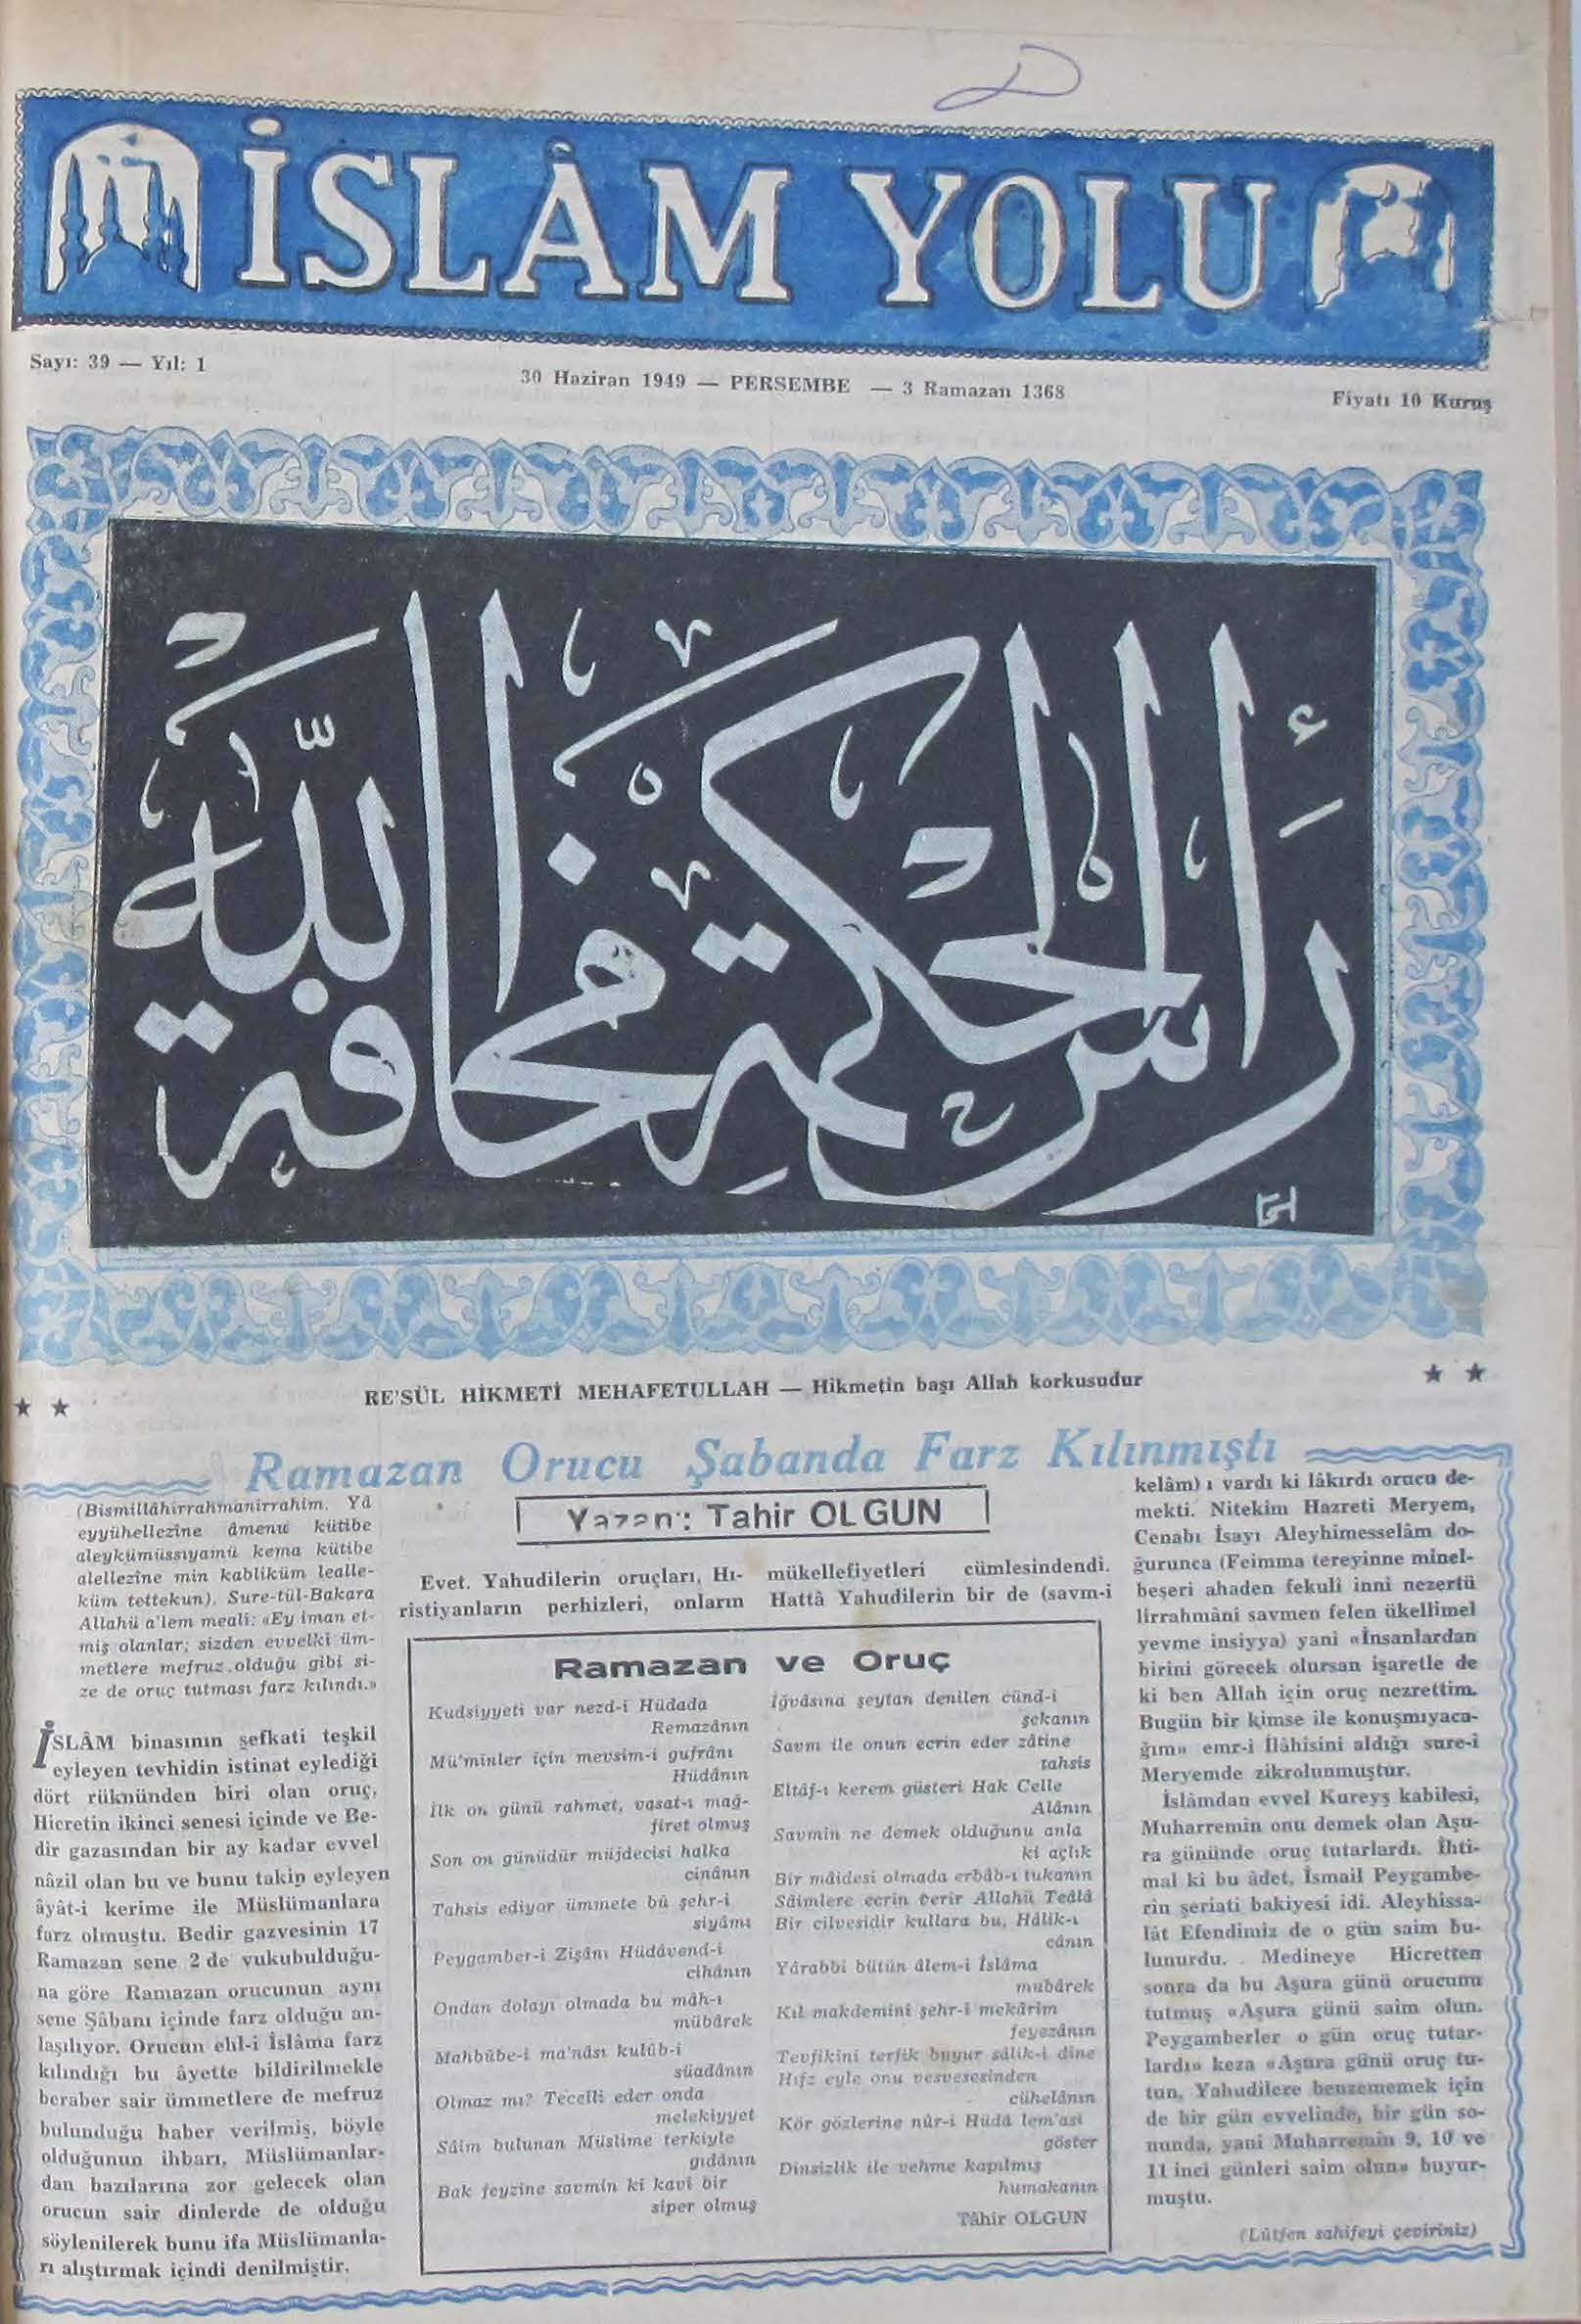 İSLÂM YOLU
Sayı: 39 — Yıl: 1
30 Haziran 1949 — PERSEMBE — 3 Ramazan 1368
Fiyatı 10 Kuruş
رَأْسُ الْحِكْمَةِ مَخَافَةُ اللّٰهِ
RE'SÜL HİKMETİ MEHAFETULLAH — Hikmetin başı Allah korkusudur
Ramazan Orucu Şabanda Farz Kılınmıştı
(Bismillâhirrahmanirrahim. Yâ
eyyühellezîne âmenu kütibe
aleykümüssıyamü kema kütibe
alellezîne min kabliküm lealle-
küm tettekun). Sure-tül-Bakara
Allahü a'lem meali: «Ey iman et-
miş olanlar; sizden evvelki üm-
metlere mefruz olduğu gibi si-
ze de oruç tutması farz kılındı.»
İSLÂM binasının şefkati teşkil
eyleyen tevhidin istinat eylediği
dört rüknünden biri olan oruç,
Hicretin ikinci senesi içinde ve Be-
dir gazasından bir ay kadar evvel
nâzil olan bu ve bunu takip eyleyen
âyât-i kerime ile Müslümanlara
farz olmuştu. Bedir gazvesinin 17
Ramazan sene 2 de vukubulduğu-
na göre Ramazan orucunun aynı
sene Şâbanı içinde farz olduğu an-
laşılıyor. Orucun ehl-i İslâma farz
kılındığı bu âyette bildirilmekle
beraber sair ümmetlere de mefruz
bulunduğu haber verilmiş, böyle
olduğunun ihbarı, Müslümanlar-
dan bazılarına zor gelecek olan
orucun sair dinlerde de olduğu
söylenilerek bunu ifa Müslümanla-
rı alıştırmak içindi denilmiştir.
Yazan: Tahir OLGUN
Evet. Yahudilerin oruçları, Hı-
ristiyanların perhizleri, onların
mükellefiyetleri cümlesindendi.
Hattâ Yahudilerin bir de (savm-i
Ramazan ve Oruç
Kudsiyyeti var nezd-i Hüdada
Remazânın
Mü'minler için mevsim-i gufrânı
Hüdânın
İlk on günü rahmet, vasat-ı mağ-
firet olmuş
Son on günüdür müjdecisi halka
cinânın
Tahsis ediyor ümmete bû şehr-i
siyâmı
Peygamber-i Zişânı Hüdâvend-i
cihânın
Ondan dolayı olmada bu mâh-ı
mübârek
Mahbûbe-i ma'nâsı kulûb-i
süadânın
Olmaz mı? Tecelli eder onda
melekiyyet
Sâim bulunan Müslime terkiyle
gıdânın
Bak feyzine savmin ki kavi bir
siper olmuş
İğvâsına şeytan denilen cünd-i
şekanın
Savm ile onun ecrin eder zâtine
tahsis
Eltâf-ı kerem güsteri Hak Celle
Alânın
Savmin ne demek olduğunu anla
ki açlık
Bir mâidesi olmada erbâb-ı tukanın
Sâimlere ecrin verir Allahü Teâlâ
Bir cilvesidir kullara bu, Hâlik-ı
cânın
Yârabbi bütün âlem-i İslâma
mubârek
Kıl makdemini şehr-i mekârim
feyezânın
Tevfikini terfik buyur sâlik-i dine
Hıfz eyle onu vesvesesinden
cühelânın
Kör gözlerine nûr-i Hüdâ lem'asi
göster
Dinsizlik ile vehme kapılmış
humakanın
Tâhir OLGUN
kelâm) ı vardı ki lâkırdı orucu de-
mekti. Nitekim Hazreti Meryem,
Cenabı İsayı Aleyhimesselâm do-
ğurunca (Feimma tereyinne minel-
beşeri ahaden fekuli inni nezertü
lirrahmâni savmen felen ükellimel
yevme insiyya) yani «İnsanlardan
birini görecek olursan işaretle de
ki ben Allah için oruç nezrettim.
Bugün bir kimse ile konuşmıyaca-
ğım» emr-i İlâhisini aldığı sure-i
Meryemde zikrolunmuştur.
İslâmdan evvel Kureyş kabilesi,
Muharremin onu demek olan Aşu-
ra gününde oruç tutarlardı. İhti-
mal ki bu âdet, İsmail Peygâmbe-
rin şeriati bakiyesi idi. Aleyhissa-
lât Efendimiz de o gün saim bu-
lunurdu. Medineye Hicretten
sonra da bu Aşura günü orucunu
tutmuş «Aşura günü saim olun.
Peygamberler o gün oruç tutar-
lardı» keza «Aşura günü oruç tu-
tun, Yahudilere benzememek için
de bir gün evvelinde, bir gün so-
nunda, yani Muharremin 9, 10 ve
11 inci günleri saim olun» buyur-
muştu.
(Lûtfen sahifeyi çeviriniz)